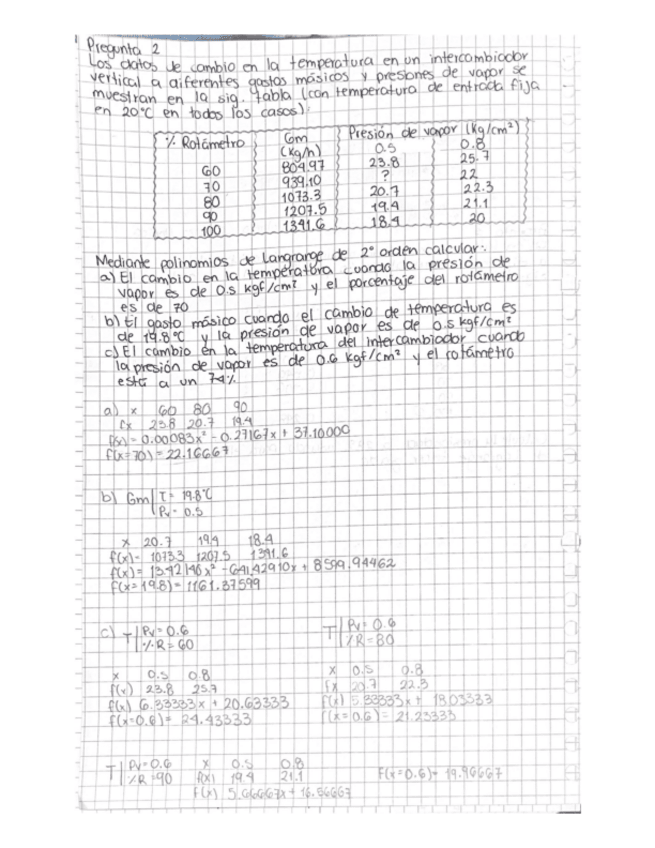 Pregunta 2
Los datos de cambio en la temperatura en un intercambiador
vertical a diferentes gastos másicos y presiones de vapor se
muestran en la sig. tabla (con temperatura de entrada fija
en 20°C en todos los casos):
% Rotámetro Gm (Kg/h) Presión de vapor (Kg/cm²)
0.5 0.8
60 804.97 23.8 25.7
70 939.10 ? 22
80 1073.3 20.7 22.3
90 1207.5 19.4 21.1
100 1341.6 18.4 20
Mediante polinomios de Langrange de 2° orden calcular:
a) El cambio en la temperatura cuando la presión de
vapor es de 0.5 kgf/cm² y el porcentaje del rotámetro
es de 70
b) El gasto másico cuando el cambio de temperatura es
de 19.8°C y la presión de vapor es de 0.5 kgf/cm²
c) El cambio en la temperatura del intercambiador cuando
la presión de vapor es de 0.6 kgf/cm² y el rotámetro
está a un 74%
a) x 60 80 90
fx 23.8 20.7 19.4
f(x) = 0.00083x² - 0.27167x + 37.10000
f(x=70) = 22.16667
b) Gm | T = 19.8°C
Pv = 0.5
x 20.7 19.4 18.4
f(x) = 1073.3 1207.5 1341.6
f(x) = 13.42146x² - 641.42910x + 8599.94462
f(x=19.8) = 1161.37599
c) T | Pv = 0.6
%R = 60
x 0.5 0.8
f(x) 23.8 25.7
f(x) 6.33333x + 20.63333
f(x=0.6) = 24.43333
T | Pv = 0.6
%R = 80
x 0.5 0.8
fx 20.7 22.3
f(x) 5.33333x + 18.03333
f(x=0.6) = 21.23333
T | Pv = 0.6 x 0.5 0.8
%R = 90 f(x) 19.4 21.1 f(x=0.6) = 19.96667
f(x) 5.66667x + 16.56667